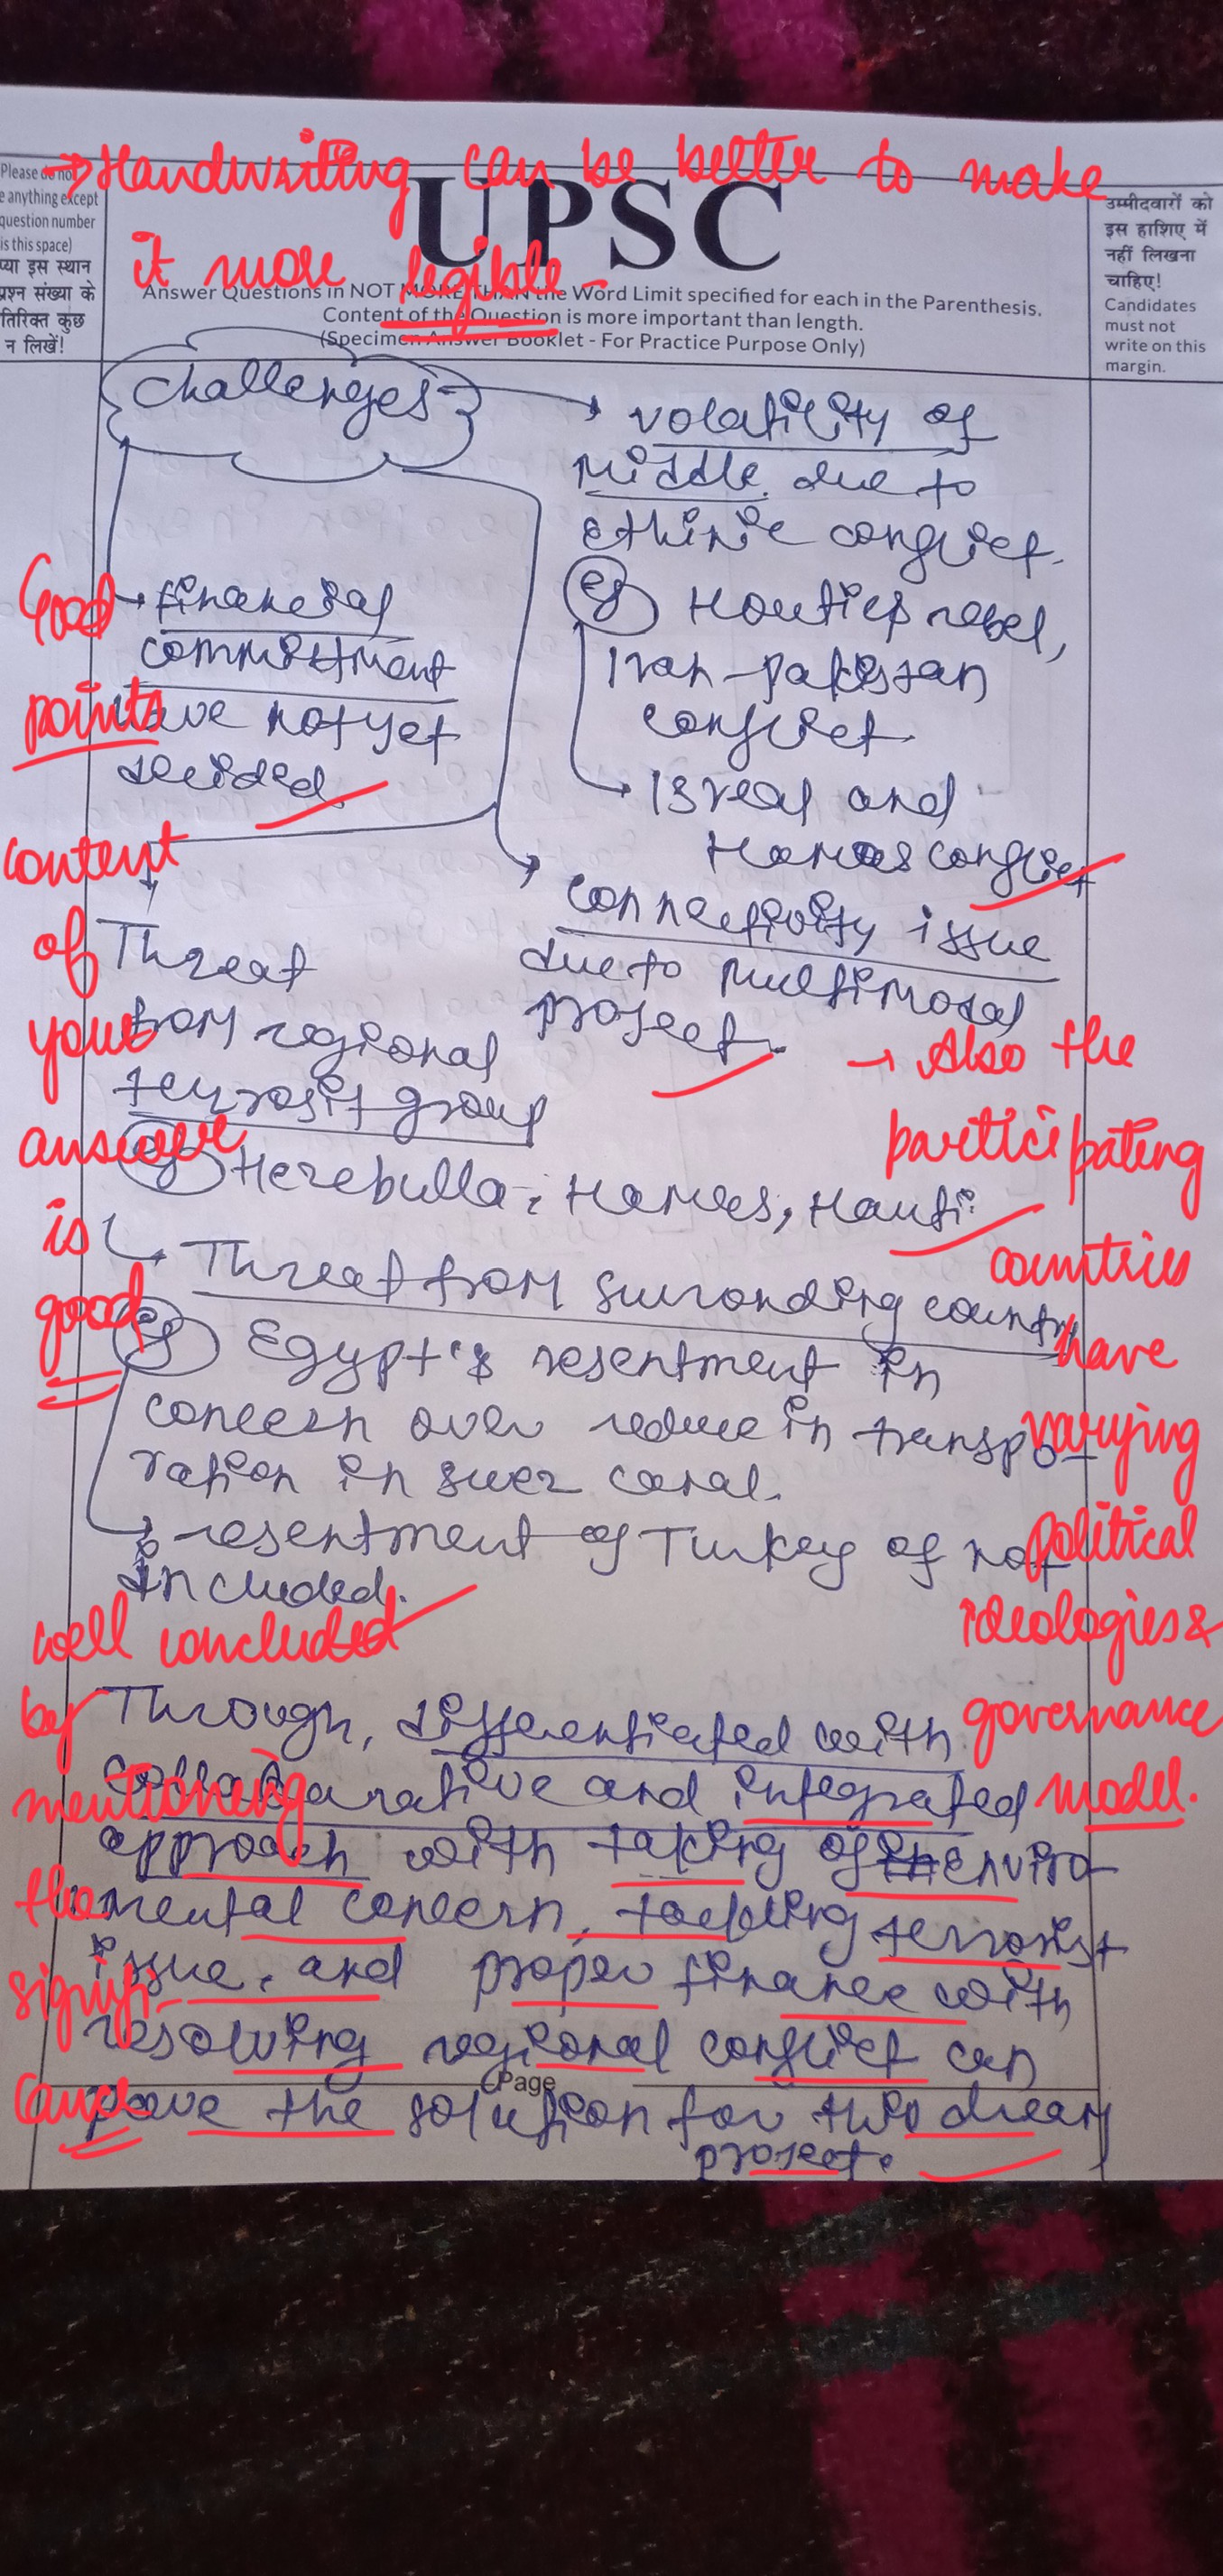 → Handwriting can be better to make
it more legible -
Please do not
e anything except
question number
is this space)
प्या इस स्थान
प्रश्न संख्या के
तिरिक्त कुछ
न लिखें!
UPSC
Answer Questions in NOT MORE THAN the Word Limit specified for each in the Parenthesis.
Content of the Question is more important than length.
(Specimen Answer Booklet - For Practice Purpose Only)
उम्मीदवारों को
इस हाशिए में
नहीं लिखना
चाहिए!
Candidates
must not
write on this
margin.
Challenges
→ volatility of
middle due to
ethinic conflict.
eg Houties rebel,
Iran-pakistan
conflict.
→ Isreal and
Hamas conflict
→ financial
committment
have not yet
decided.
→ connectivity issue
due to multimodal
project.
Threat
from regional
terrosit group
eg Hezebulla, Hamas, Hauti
→ Threat from surronding country
eg Egypt's resentment in
concern over reduce in transpo-
ration in suez canal.
→ resentment of Turkey of not
included.
Through, differentiated with
collabarative and integrated
approach with taking of enviro-
mental concern, tackling terrorist
issue, and proper finance with
resolving regional conflict can
pave the solution for this dream
project.
Page
Good
points
content
of
your
answer
is
good
→ Also the
participating
countries
have
varying
political
ideologies &
governance
model.
well concluded
by
mentioning
the
signifi-
cance